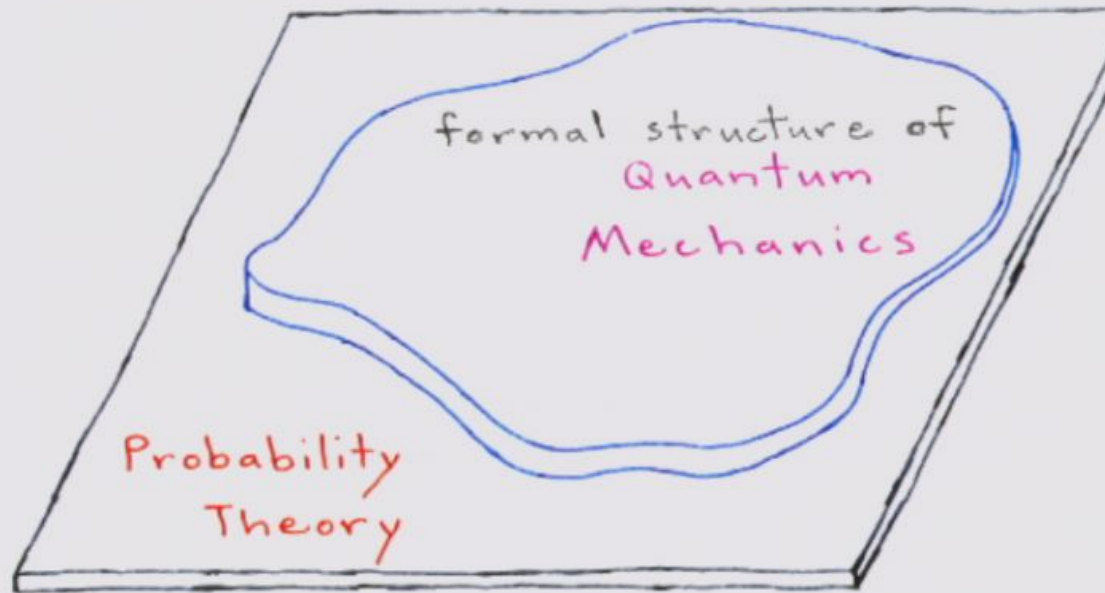 formal structure of
Quantum
Mechanics
Probability
Theory